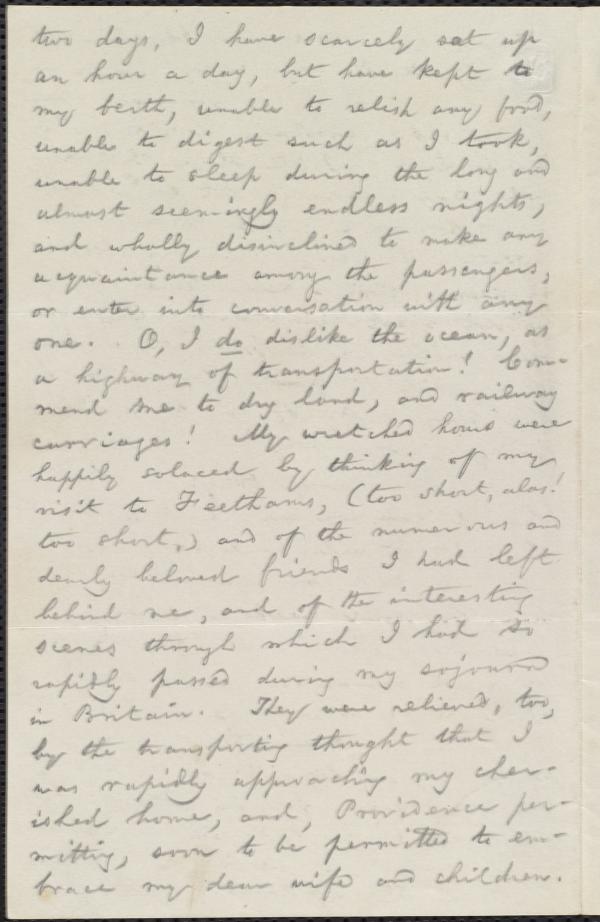 two days, I have scarcely sat up
an hour a day, but have kept to
my berth, unable to relish any food,
unable to digest such as I took,
unable to sleep during the long and
almost seemingly endless nights,
and wholly disinclined to make any
acquaintance among the passengers,
or enter into conversation with any
one. O, I do dislike the ocean, as
a highway of transportation! Com-
mend me to dry land, and railway
carriages! My wretched hours were
happily solaced by thinking of my
visit to Feethams, (too short, alas!
too short,) and of the numerous and
dearly beloved friends I had left
behind me, and of the interesting
scenes through which I had so
rapidly passed during my sojourn
in Britain. They were relieved, too,
by the transporting thought that I
was rapidly approaching my cher-
ished home, and, Providence per-
mitting, soon to be permitted to em-
brace my dear wife and children.